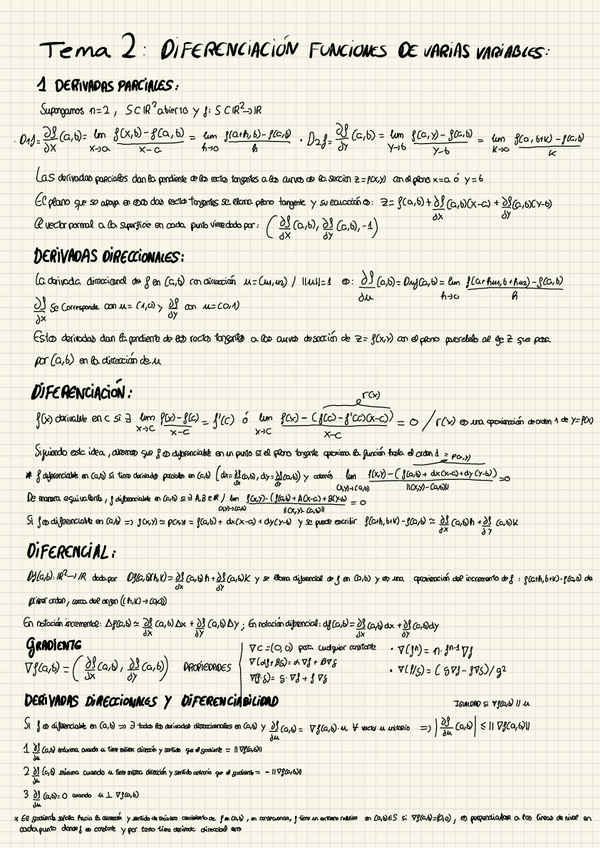 Tema 2: DIFERENCIACIÓN FUNCIONES DE VARIAS VARIABLES:
1 DERIVADAS PARCIALES:
Supongamos n=2, S⊂ℝ² abierto y f: S⊂ℝ²→ℝ
· D₁f = ∂f/∂x (a,b) = lim x→a (f(x,b)-f(a,b))/(x-a) = lim h→0 (f(a+h,b)-f(a,b))/h · D₂f = ∂f/∂y (a,b) = lim y→b (f(a,y)-f(a,b))/(y-b) = lim k→0 (f(a,b+k)-f(a,b))/k
Las derivadas parciales dan la pendiente de las rectas tangentes a las curvas de la sección z=f(x,y) con el plano x=a ó y=b
El plano que se apoya en esas dos rectas tangentes se llama plano tangente y su ecuación es: z=f(a,b)+∂f/∂x (a,b)(x-a)+∂f/∂y (a,b)(y-b)
El vector normal a la superficie en cada punto viene dado por: (∂f/∂x (a,b), ∂f/∂y (a,b), -1)
DERIVADAS DIRECCIONALES:
La derivada direccional de f en (a,b) con dirección u=(u₁,u₂) / ||u||=1 es: ∂f/∂u (a,b)=Duf(a,b)= lim h→0 (f(a+hu₁,b+hu₂)-f(a,b))/h
∂f/∂x se corresponde con u=(1,0) y ∂f/∂y con u=(0,1)
Estas derivadas dan la pendiente de las rectas tangentes a las curvas de sección de z=f(x,y) con el plano paralelo al eje z que pasa
por (a,b) en la dirección de u
DIFERENCIACIÓN:
r(x)
f(x) derivable en c si ∃ lim x→c (f(x)-f(c))/(x-c) = f'(c) ó lim x→c (f(x)-(f(c)-f'(c)(x-c)))/(x-c) = 0 / r(x) es una aproximación de orden 1 de y=f(x)
Siguiendo esta idea, diremos que f es diferenciable en un punto si el plano tangente aproxima la función hasta el orden 1
= p(x,y)
* f diferenciable en (a,b) si tiene derivadas parciales en (a,b) (dx=∂f/∂x (a,b), dy=∂f/∂y (a,b)) y además lim (x,y)→(a,b) (f(x,y)-(f(a,b)+dx(x-a)+dy(y-b)))/||(x,y)-(a,b)|| =0
De manera equivalente, f diferenciable en (a,b) si ∃ A,B∈ℝ / lim (x,y)→(a,b) (f(x,y)-(f(a,b)+A(x-a)+B(y-b)))/||(x,y)-(a,b)|| = 0
Si f es diferenciable en (a,b) ⇒ f(x,y) ≃ p(x,y) = f(a,b)+dx(x-a)+dy(y-b) y se puede escribir f(a+h,b+k)-f(a,b) ≃ ∂f/∂x (a,b)h+∂f/∂y (a,b)k
DIFERENCIAL:
Df(a,b): ℝ²→ℝ dada por Df(a,b)(h,k)=∂f/∂x (a,b)h+∂f/∂y (a,b)k y se llama diferencial de f en (a,b) y es una aproximación del incremento de f: f(a+h,b+k)-f(a,b) de
primer orden, cerca del origen ((h,k)→(0,0))
En notación incremental: Δf(a,b) ≃ ∂f/∂x (a,b)Δx+∂f/∂y (a,b)Δy; En notación diferencial: df(a,b)=∂f/∂x (a,b)dx+∂f/∂y (a,b)dy
GRADIENTE
∇f(a,b)=(∂f/∂x (a,b), ∂f/∂y (a,b)) PROPIEDADES
∇c=(0,0) para cualquier constante · ∇(fⁿ)=n·fⁿ⁻¹∇f
∇(αf+βg)=α∇f+β∇g
∇(f·g)=g·∇f+f∇g · ∇(f/g)=(g∇f-f∇g)/g²
DERIVADAS DIRECCIONALES Y DIFERENCIABILIDAD
IGUALDAD si ∇f(a,b) || u
Si f es diferenciable en (a,b) ⇒ ∃ todas las derivadas direccionales en (a,b) y ∂f/∂u (a,b)=∇f(a,b)·u ∀ vector u unitario ⇒ |∂f/∂u (a,b)| ≤ ||∇f(a,b)||
1 ∂f/∂u (a,b) máxima cuando u tiene misma dirección y sentido que el gradiente = ||∇f(a,b)||
2 ∂f/∂u (a,b) mínima cuando u tiene misma dirección y sentido contrario que el gradiente = -||∇f(a,b)||
3 ∂f/∂u (a,b)=0 cuando u ⊥ ∇f(a,b)
* El gradiente señala hacia la dirección y sentido de máximo crecimiento de f en (a,b), en consecuencia, f tiene un extremo relativo en (a,b)∈S si ∇f(a,b)=(0,0), es perpendicular a las líneas de nivel en
cada punto donde f es constante y por tanto tiene derivada direccional cero